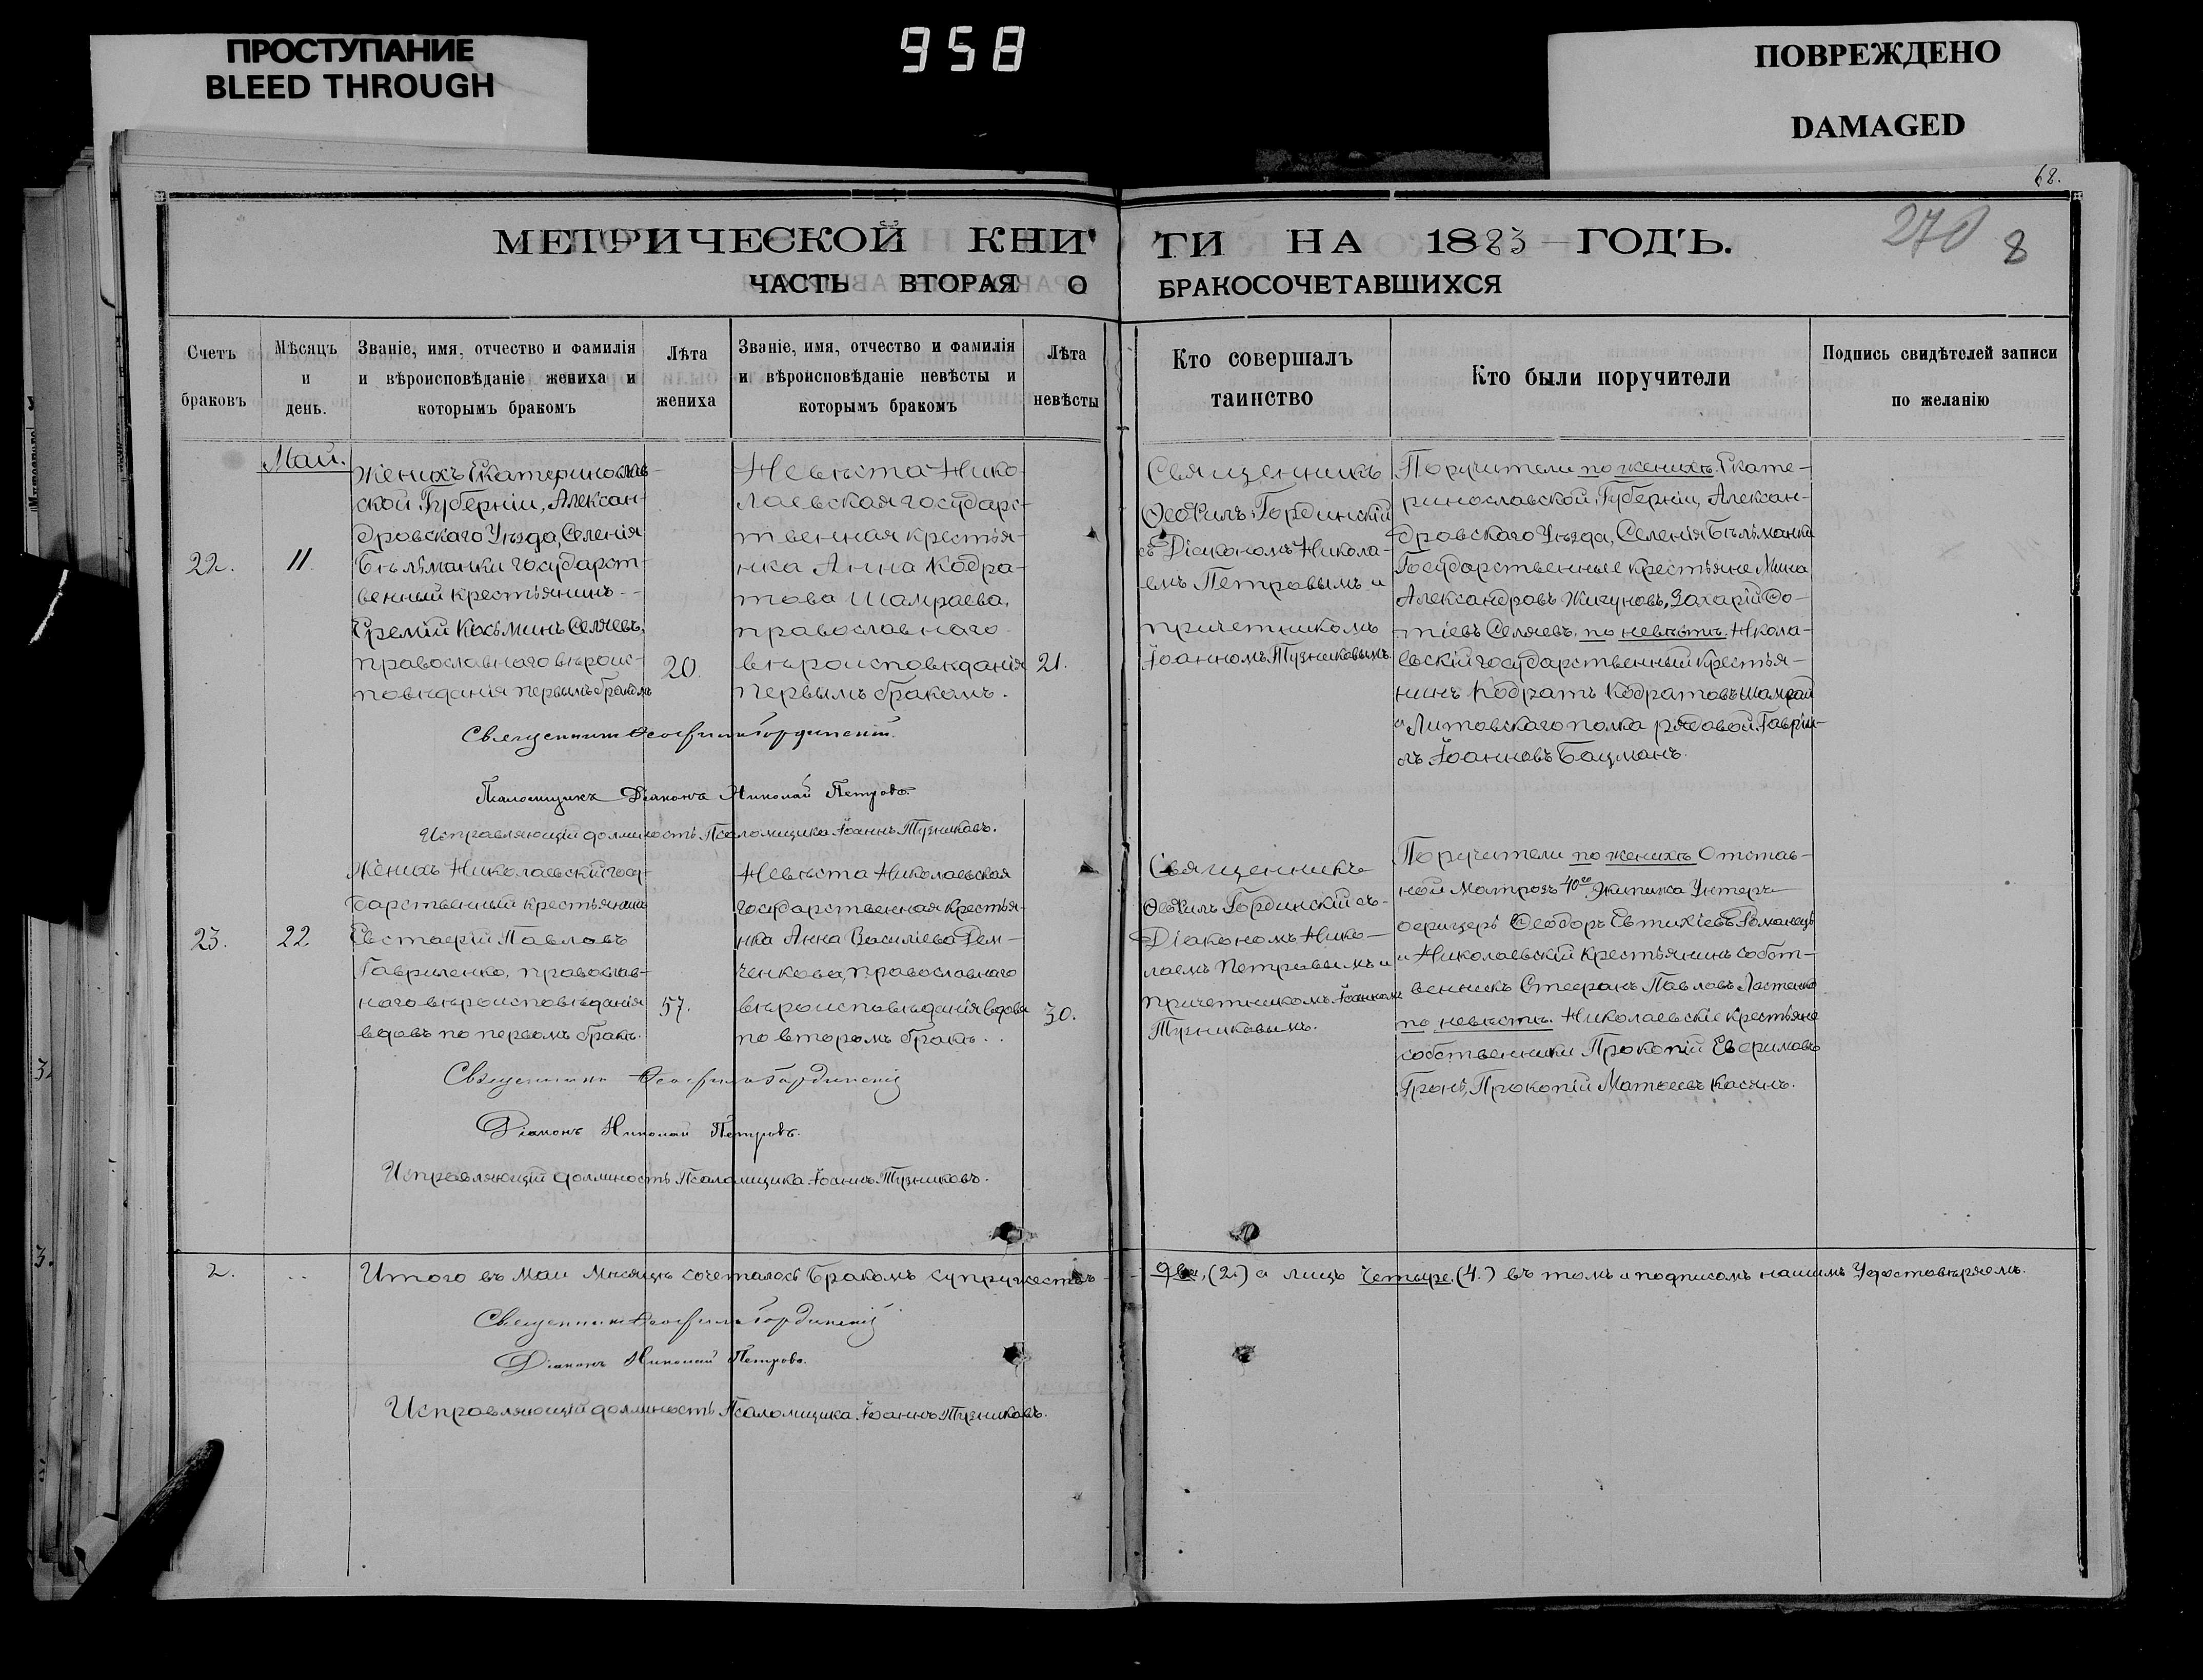 ПРОСТУПАНИЕ
BLEED THROUGH
958
ПОВРЕЖДЕНО
DAMAGED
68.
270
8
МЕТРИЧЕСКОЙ КНИ
ГИ НА 1883 ГОДЪ.
ЧАСТЬ ВТОРАЯ О
БРАКОСОЧЕТАВШИХСЯ
Счетъ
браковъ
Мѣсяцъ
и
день.
Званіе, имя, отчество и фамилія
и вѣроисповѣданіе жениха и
которымъ бракомъ
Лѣта
жениха
Званіе, имя, отчество и фамилія
и вѣроисповѣданіе невѣсты и
которымъ бракомъ
Лѣта
невѣсты
Кто совершалъ
таинство
Кто были поручители
Подпись свидѣтелей записи
по желанію
Май.
22.
11
Женихъ Екатеринослав-
ской Губерніи, Алексан-
дровскаго Уѣзда, Селенія
Бѣльманки государст-
венный крестьянинъ
Еремій Косьминъ Селяевъ,
православнаго вѣроис-
повѣданія первымъ бракомъ
20.
Невѣста Нико-
лаевская государс-
твенная крестья-
нка Анна Кодра-
това Шамраева,
православнаго
вѣроисповѣданія
первымъ бракомъ.
21.
Священникъ
Ѳеофилъ Гординскій
съ Діакономъ Никола-
емъ Петровымъ и
причетникомъ
Іоанномъ Тузниковымъ.
Поручители по женихѣ. Екате-
ринославской Губерніи, Алексан-
дровскаго Уѣзда, Селенія Бѣльманки
Государственные крестьяне Мина
Александровъ Жигуновъ, Захарій Фо-
тіевъ Селяевъ. по невѣстѣ. Никола-
евскій государственный крестья-
нинъ Кодратъ Кодратовъ Шамрай
и Литовскаго полка рядовой Гаврі-
лъ Іоанновъ Бацманъ.
Священникъ Ѳеофилъ Гординскій.
Псаломщикъ Діаконъ Николай Петровъ.
Исправляющій должность Псаломщика Іоаннъ Тузниковъ.
23.
22.
Женихъ Николаевскій госу-
дарственный крестьянинъ
Евстафій Павловъ
Гавриленко, православ-
наго вѣроисповѣданія
вдовъ по первомъ бракѣ.
57.
Невѣста Николаевская
государственная крестья-
нка Анна Василіева Дем-
ченкова, православнаго
вѣроисповѣданія вдова
по второмъ бракѣ.
30.
Священникъ
Ѳеофилъ Гординскій съ
Діакономъ Нико-
лаемъ Петровымъ и
причетникомъ Іоанномъ
Тузниковымъ.
Поручители по женихѣ Отстав-
ной Матрозъ 40го Экипажа Унтеръ
офицеръ Ѳеодоръ Евтихіевъ Романецъ
и Николаевскій крестьянинъ собст-
венникъ Стефанъ Павловъ Ластенко
по невѣстѣ. Николаевскіе крестьяне
собственники Прокопій Евфимовъ
Гронь, Прокопій Матѳеевъ Касянъ.
Священникъ Ѳеофилъ Гординскій
Діаконъ Николай Петровъ.
Исправляющій должность Псаломщика Іоаннъ Тузниковъ.
2.
Итого въ Маи мѣсяцѣ сочеталось бракомъ супружествъ
два, (2.) а лицъ Четыре. (4.) въ томъ и подписомъ нашимъ Удостовѣряемъ.
Священникъ Ѳеофилъ Гординскій
Діаконъ Николай Петровъ.
Исправляющій должность Псаломщика Іоаннъ Тузниковъ.